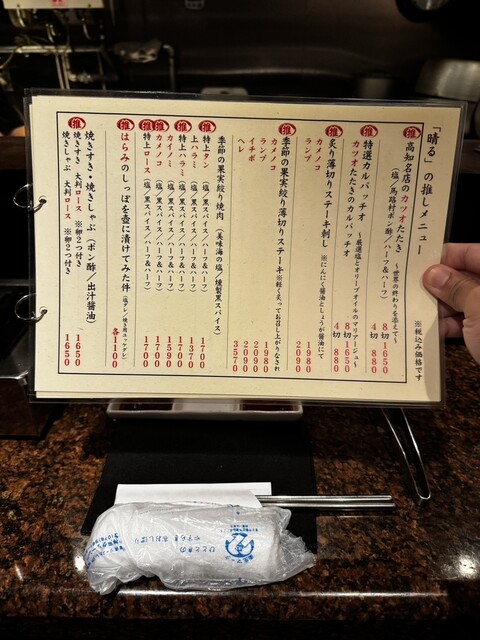 「晴る」の推しメニュー ※税込み価格です
推 高知名店のカツオたたき ～世界の終わりを添えて～
（塩／馬路村ポン酢／ハーフ&ハーフ） 8切 1650
4切 880
推 特選カルパッチオ ～厳選塩とオリーブオイルのマリアージュ～
カツオたたきのカルパッチオ 8切 1650
4切 880
推 炙り薄切りステーキ刺し ※にんにく醤油としょうが醤油にて
ランプ 1980
カメノコ 2090
推 季節の果実絞り薄切りステーキ ※軽く炙ってお召し上がりなされ
カメノコ 1980
ランプ 2090
イチボ 2090
ヘレ 3570
季節の果実絞り焼肉 （美味海の塩／燻製黒スパイス）
推 特上タン （塩／黒スパイス／ハーフ&ハーフ） 1700
上ハラミ （塩／黒スパイス／ハーフ&ハーフ） 1370
推 特上ハラミ （塩／黒スパイス／ハーフ&ハーフ） 1700
推 カイノミ （塩／黒スパイス／ハーフ&ハーフ） 1590
推 カメノコ （塩／黒スパイス／ハーフ&ハーフ） 1700
推 特上ロース （塩／黒スパイス／ハーフ&ハーフ） 1700
推 はらみのしっぽを壺に漬けてみた件 各1100
推 焼きすき・焼きしゃぶ （ポン酢／出汁醤油）
焼きすき 大判ロース ※卵2つ付き 1650
焼きしゃぶ 大判ロース ※卵2つ付き 1650
ひとときの
やすらぎ・貸おしぼり